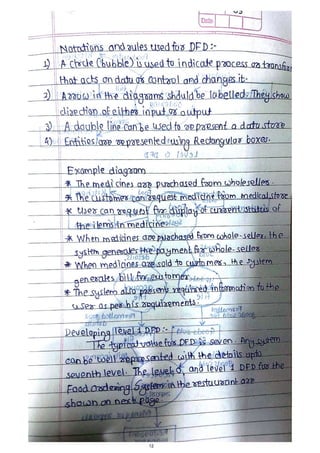 Date
Notations and rules used for DFD:-
1) A Circle (bubble) is used to indicate process or transform
that acts on data or control and changes it.
2) Arrow in the diagrams should be labelled. They show
direction of either input or output
3) A double line can be used to represent a data store
4) Entities are represented using Rectangular boxes.
Example diagram
* The medicines are purchased from wholeseller.
* The customer can request medicine from medical store
* User can request for display of current status of
the items in medicine
* When medicines are purchased from whole-seller. the
system generates the payment for whole-seller
* When medicines are sold to customer, the system
generates bill for customer
* The system also presents required information to the
user as per his requirements.
Developing level 1 DFD:-
The typical value for DFD is seven. Any system
can be well represented with the details upto
seventh level. The level 0, and level 1 DFD for the
Food ordering System in the restaurant are
shown on next page